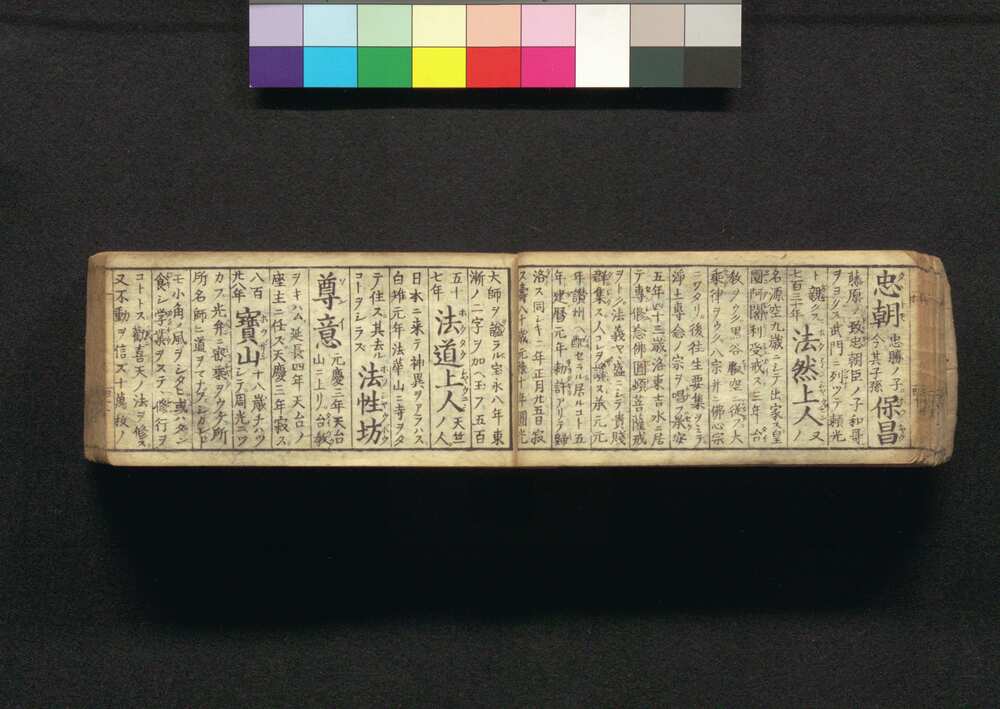 忠朝 忠勝ノ子 今其子孫 保昌
藤原ノ致忠朝臣ノ子和哥
ヲヨクス武門ニ列シテ頼光
ト親シ 法然上人 又
七百三年
名源空九歳ニシテ出家ス皇
圓阿闍利受戒ス三年台
教ヲ黒谷ノ叡空ニ従フ大
乗律ヲウク八宗并ニ佛心宗
ニワタリ後往生要集ヲミテ
浄土専念ノ宗ヲ唱フ承安
五年四十三歳洛東吉水ニ居
テ専修念佛圓頓菩薩戒
ヲトク法義マス盛ニシテ貴賤
群集ス人コレヲ承元元
年讃州ヘ配セラル居ルコト五
年建暦元年勅許アリテ歸
洛ス同シキ二年正月廿五日寂
ス壽八十歳元禄十年圓光
大師ヲ謚ラル宝永八年東
漸ノ二字ヲ加ヘ玉フ五百
五十七年 法道上人 天竺ノ人
日本ニ来テ神異ヲアラハス
白雉元年法華山ニ寺ヲタ
テ住ス其去ル 法性坊
コトヲシラス
尊意 元慶三年天台
山ニ上リ台教
ヲキハム延長四年天台ノ
座主ニ任ス天慶三年寂ス
八百廿八年 寶山 十八歳ナツ
シテ周光ニツ
カフ光弁ニ密乗ヲウケ所
所名師ニ道ヲマナブシカレ
モ小角ノ風ヲシタヒ或ハダン
食シ学業ヲステ修行ヲ
コトトス歡喜天ノ法ヲ修ス
又不動ヲ信ズ十萬枚ノ